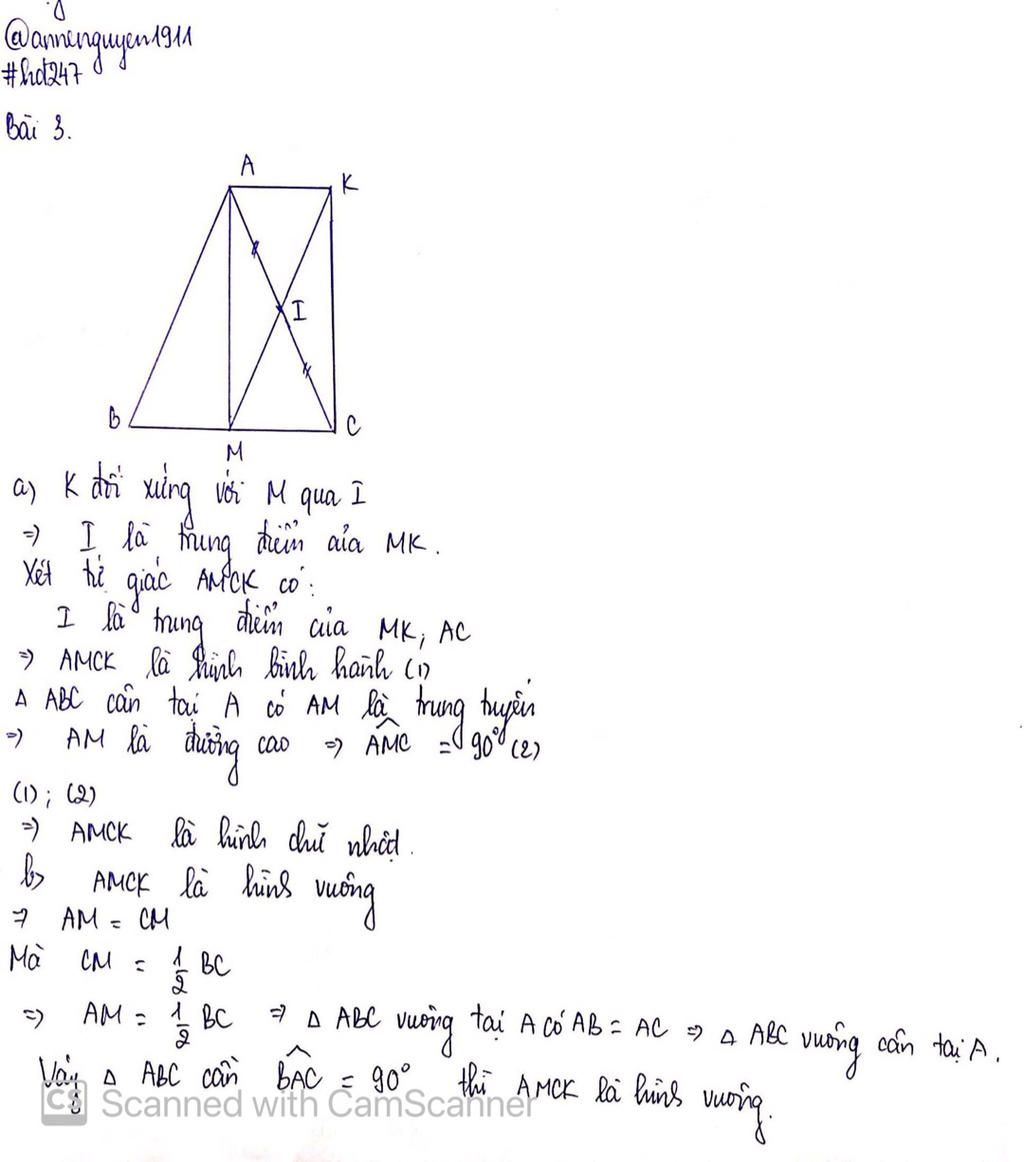 @annenguyen1911
#hd247
Bài 3.
A
K
I
B
C
M
a) K đối xứng với M qua I
=> I là trung điểm của MK.
Xét tứ giác AMCK có:
I là trung điểm của MK; AC
=> AMCK là hình bình hành (1)
Δ ABC cân tại A có AM là trung tuyến
=> AM là đường cao => \widehat{AMC} = 90° (2)
(1); (2)
=> AMCK là hình chữ nhật.
b> AMCK là hình vuông
=> AM = CM
Mà CM = 1/2 BC
=> AM = 1/2 BC => Δ ABC vuông tại A có AB = AC => Δ ABC vuông cân tại A.
Vậy Δ ABC cần \widehat{BAC} = 90° thì AMCK là hình vuông.
CS Scanned with CamScanner